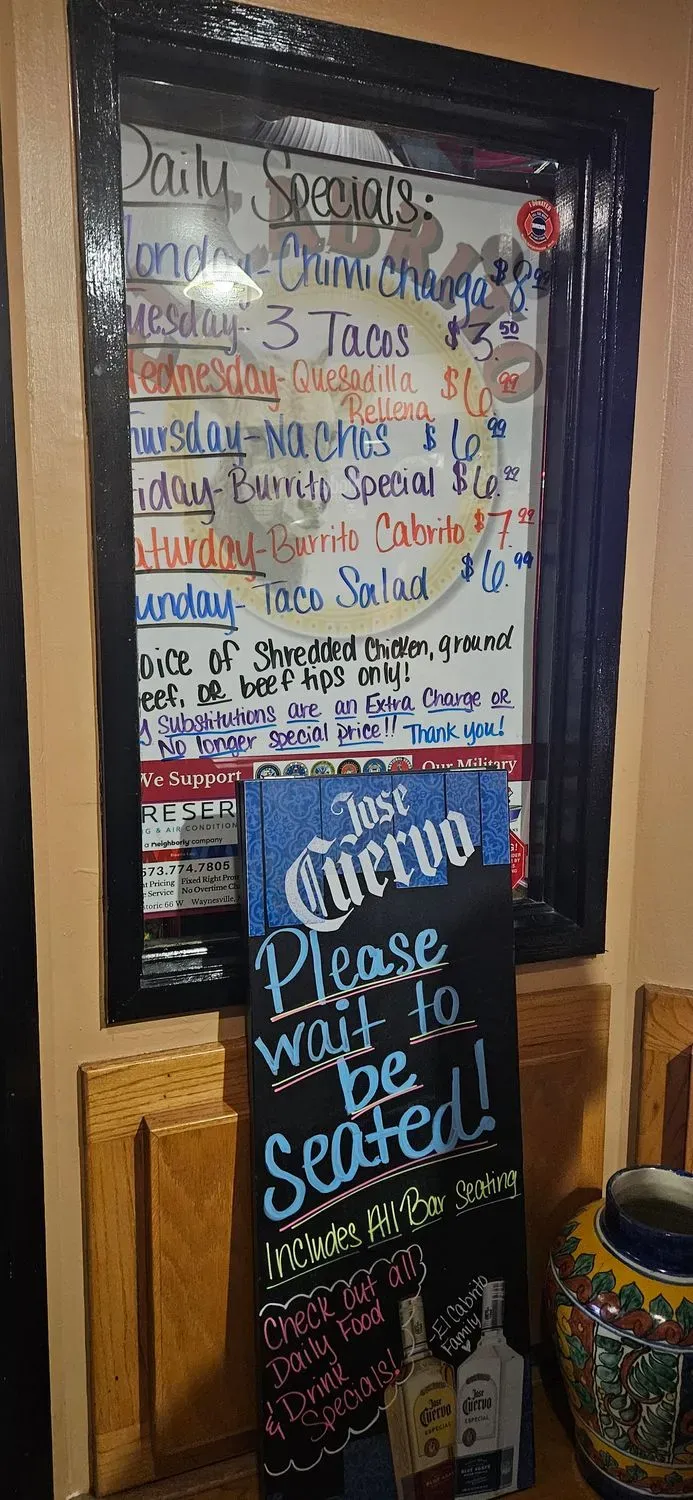 Daily Specials:
Monday- Chimichanga $8.99
Tuesday- 3 Tacos $3.50
Wednesday- Quesadilla $6.99
Rellena
Thursday- Nachos $6.99
Friday- Burrito Special $6.99
Saturday- Burrito Cabrito $7.99
Sunday- Taco Salad $6.99
oice of Shredded Chicken, ground
eef, or beef tips only!
y Substitutions are an Extra Charge OR
No longer special price!! Thank you!
We Support Our Military
RESER
G & AIR CONDITION
a neighborly company
573.774.7805
t Pricing Fixed Right Pro
e Service No Overtime Ch
storic 66 W Waynesville,
Jose
Cuervo
Please
wait to
be
seated!
Includes All Bar Seating
Check out all
Daily Food
& Drink
Specials!
-El Cabrito
Family
Jose
Cuervo
ESPECIAL
Jose
Cuervo
ESPECIAL
BLUE AGAVE
BLUE AGAVE